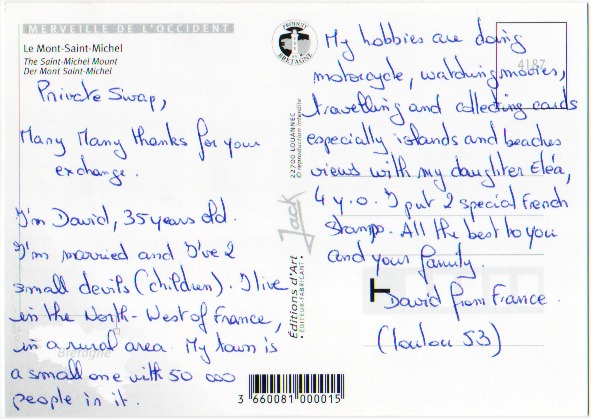 MERVEILLE DE L'OCCIDENT
Le Mont-Saint-Michel
The Saint-Michel Mount
Der Mont Saint-Michel
Private Swap,
Many Many thanks for your
exchange.
I'm David, 35 years old.
I'm married and I've 2
small devils (children). I live
in the North-West of France,
in a rural area. My town is
a small one with 50 000
people in it.
Bretagne
3 660081 000015
PRODUIT
EN
BRETAGNE
22700 LOUANNEC
© reproduction interdite
Jack
Editions d'Art
• ÉDITEUR-FABRICANT •
4187
My hobbies are doing
motorcycle, watching movies,
travelling and collecting cards
especially islands and beaches
views with my daughter Eléa,
4 y.o. I put 2 special French
stamps. All the best to you
and your family.
David from France.
(loulou 53)